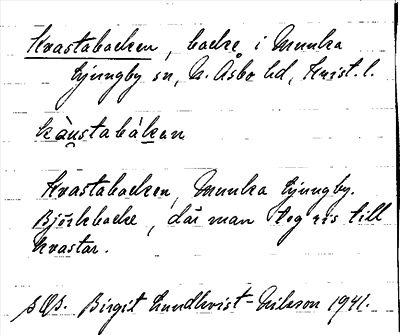 Kvastabacken, backe i Munka
Ljungby sn, N. Åsbo hd, Krist. l.
kàu̯stabákan
Kvastabacken, Munka Ljungby.
Björkbacke, där man tog ris till
kvastar.
Birgit Lundkvist-Nilsson 1941.